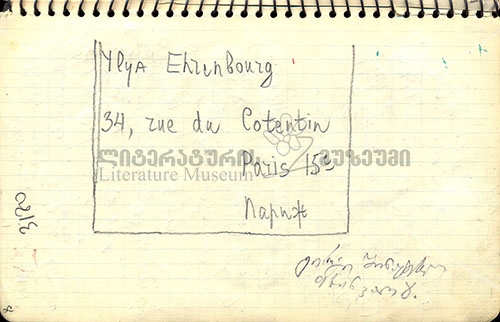 Ylya Ehrenbourg
34, rue du Cotentin
ლიტერატურის მუზეუმი
Literature Museum
Paris 15e
Париж
3/20